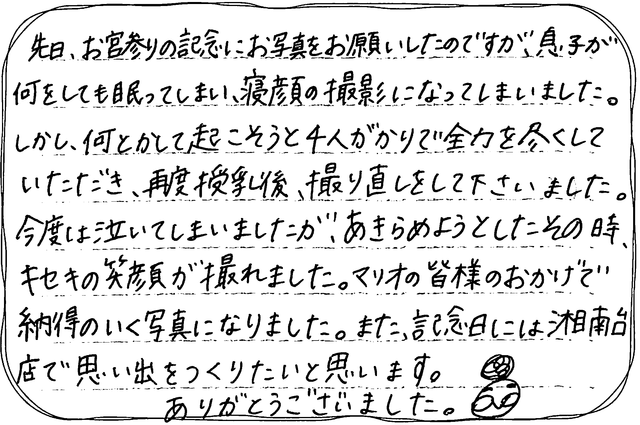 先日、お宮参りの記念にお写真をお願いしたのですが、息子が
何をしても眠ってしまい、寝顔の撮影になってしまいました。
しかし、何とかして起こそうと4人がかりで全力を尽くして
いただき、再度授乳後、撮り直しをして下さいました。
今度は泣いてしまいましたが、あきらめようとしたその時、
キセキの笑顔が撮れました。マリオの皆様のおかげで
納得のいく写真になりました。また、記念日には湘南台
店で思い出をつくりたいと思います。
ありがとうございました。